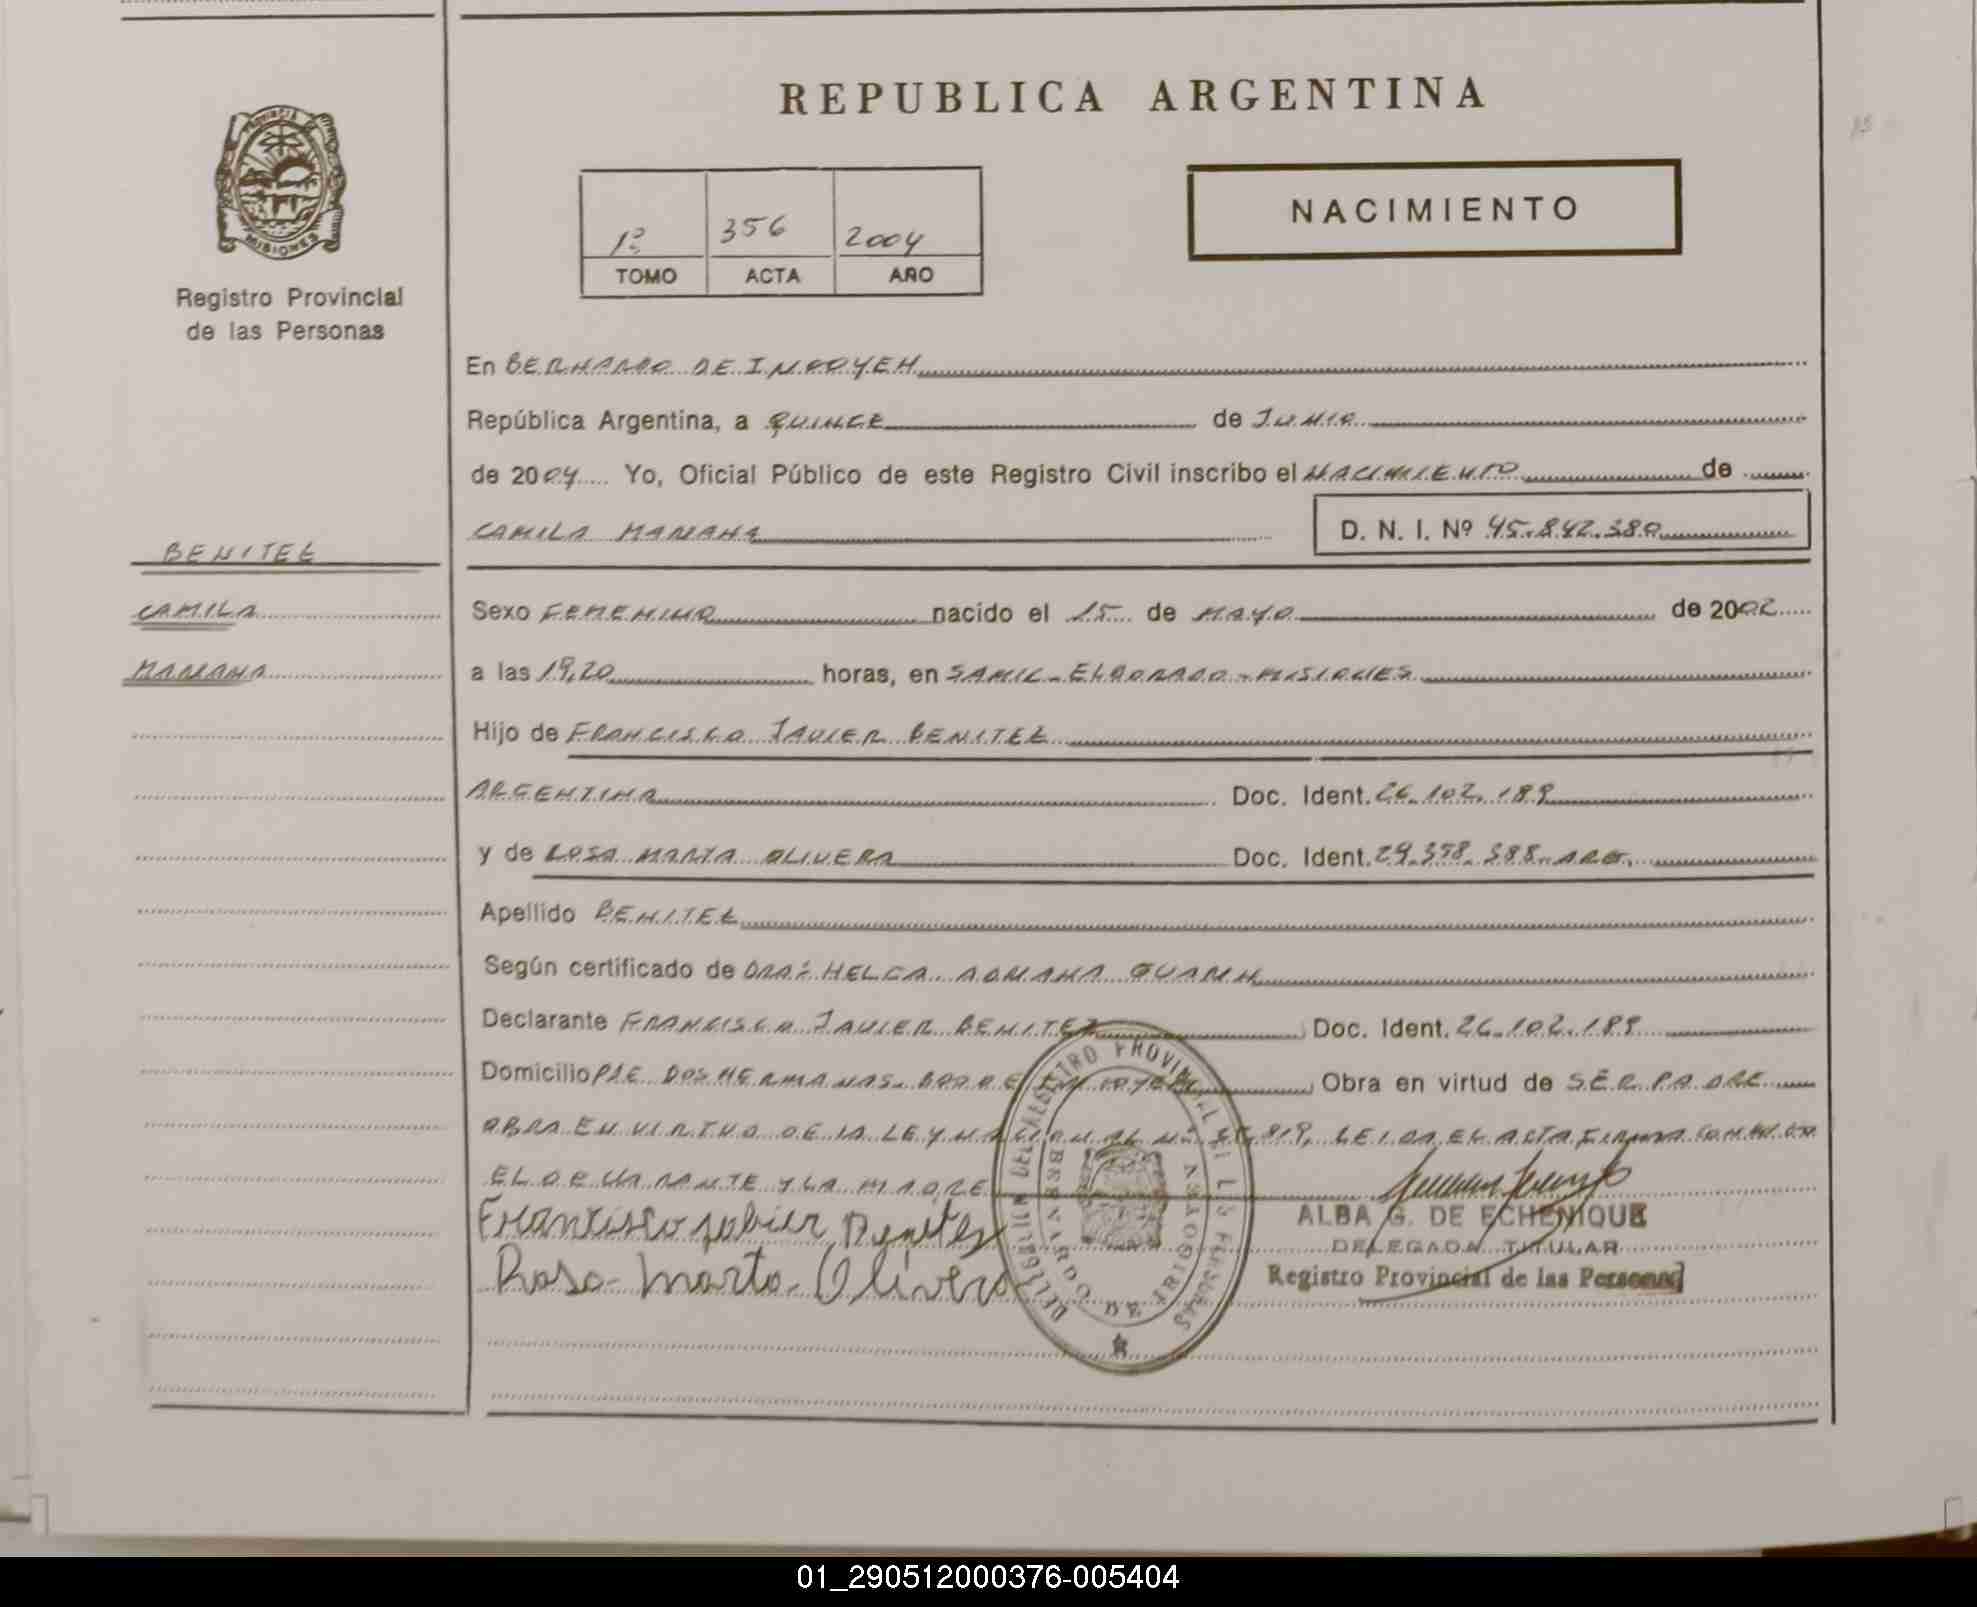 REPUBLICA ARGENTINA
PROVINCIA DE
MISIONES
Registro Provincial
de las Personas
1º 356 2004
TOMO ACTA AÑO
NACIMIENTO
En BERNARDO DE IRIGOYEN
República Argentina, a QUINCE de JUNIO
de 2004 Yo, Oficial Público de este Registro Civil inscribo el NACIMIENTO de
CAMILA MARIANA D. N. I. Nº 45.842.380
BENITEZ
CAMILA
MARIANA
Sexo FEMENINO nacido el 15 de MAYO de 2002
a las 19,20 horas, en SAMIC - ELDORADO - MISIONES
Hijo de FRANCISCO JAVIER BENITEZ
ARGENTINA Doc. Ident. 26.102.189
y de ROSA MARTA OLIVERA Doc. Ident. 29.358.388 ARG.
Apellido BENITEZ
Según certificado de DRA: HELGA ADRIANA
Declarante FRANCISCO JAVIER BENITEZ Doc. Ident. 26.102.189
Domicilio PJE DOS HERMANAS - BDO DE IRIGOYEN Obra en virtud de SER PADRE
OBRA EN VIRTUD DE LA LEY NACIONAL Nº 25.819, LEIDA EL ACTA FIRMA CONMIGO
EL DECLARANTE Y LA MADRE
Francisco Javier Benitez
Rosa Marta Olivera
DELEGACION DEL REGISTRO PROVINCIAL DE LAS PERSONAS
BERNARDO DE IRIGOYEN
ALBA G. DE ECHENIQUE
DELEGADA TITULAR
Registro Provincial de las Personas
01_290512000376-005404